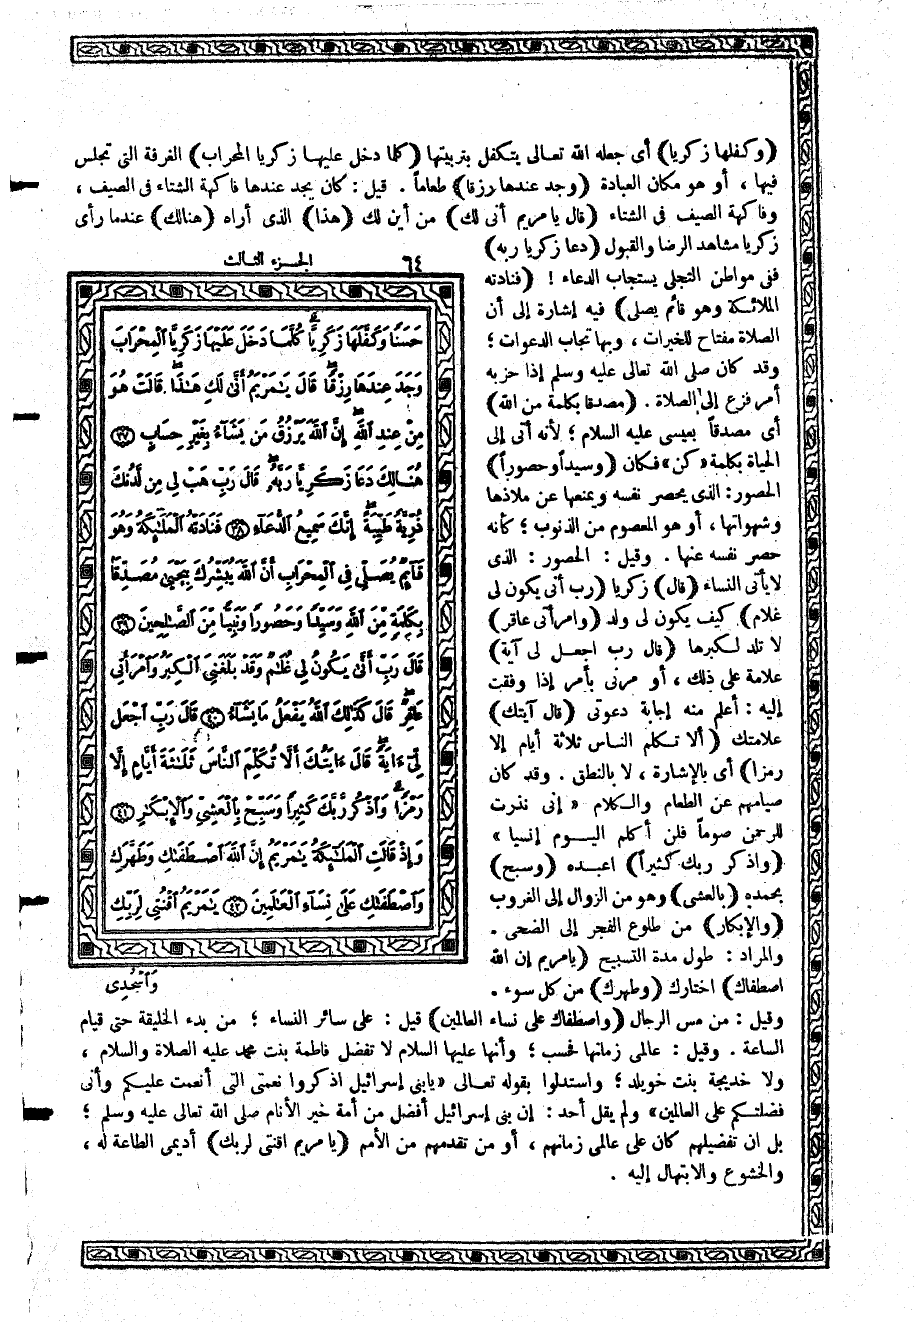 (وكفلها زكريا) أى جعله الله تعالى يتكفل بتربيتها (كلما دخل عليها زكريا المحراب) الغرفة التى تجلس
فيها ، أو هو مكان العبادة (وجد عندها رزقا) طعاماً . قيل : كان يجد عندها فاكهة الشتاء فى الصيف ،
وفاكهة الصيف فى الشتاء (قال يا مريم أنى لك) من أين لك (هذا) الذى أراه (هنالك) عندما رأى
زكريا مشاهد الرضا والقبول (دعا زكريا ربه)
ففى مواطن التجلى يستجاب الدعاء ! (فنادته
الملائكة وهو قائم يصلى) فيه إشارة إلى أن
الصلاة مفتاح للخيرات ، وبها تجاب الدعوات ؛
وقد كان صلى الله تعالى عليه وسلم إذا حزبه
أمر فزع إلى الصلاة . (مصدقا بكلمة من الله)
أى مصدقاً بعيسى عليه السلام ؛ لأنه أتى إلى
الحياة بكلمة «كن» فكان (وسيداً وحصوراً)
الحصور: الذى يحصر نفسه ويمنعها عن ملاذها
وشهواتها ، أو هو المعصوم من الذنوب ؛ كأنه
حصر نفسه عنها . وقيل : الحصور : الذى
لا يأتى النساء (قال) زكريا (رب أنى يكون لى
غلام) كيف يكون لى ولد (وامرأتى عاقر)
لا تلد لكبرها (قال رب اجعل لى آية)
علامة على ذلك ، أو مرنى بأمر إذا وفقت
إليه : أعلم منه إجابة دعوتى (قال آيتك)
علامتك (ألا تكلم الناس ثلاثة أيام إلا
رمزا) أى بالإشارة ، لا بالنطق . وقد كان
صيامهم عن الطعام والكلام « إنى نذرت
للرحمن صوماً فلن أكلم اليوم إنسيا »
(واذكر ربك كثيراً) اعبده (وسبح)
بحمده (بالعشى) وهو من الزوال إلى الغروب
(والإبكار) من طلوع الفجر إلى الضحى .
والمراد : طول مدة التسبيح (يا مريم إن الله
اصطفاك) اختارك (وطهرك) من كل سوء .
الجزء الثالث ٦٤
حَسَنًا وَكَفَّلَهَا زَكَرِيَّا كُلَّمَا دَخَلَ عَلَيْهَا زَكَرِيَّا ٱلْمِحْرَابَ
وَجَدَ عِندَهَا رِزْقًا قَالَ يَٰمَرْيَمُ أَنَّىٰ لَكِ هَٰذَا قَالَتْ هُوَ
مِنْ عِندِ ٱللَّهِ إِنَّ ٱللَّهَ يَرْزُقُ مَن يَشَآءُ بِغَيْرِ حِسَابٍ ٣٧
هُنَالِكَ دَعَا زَكَرِيَّا رَبَّهُۥ قَالَ رَبِّ هَبْ لِى مِن لَّدُنكَ
ذُرِّيَّةً طَيِّبَةً إِنَّكَ سَمِيعُ ٱلدُّعَآءِ ٣٨ فَنَادَتْهُ ٱلْمَلَٰٓئِكَةُ وَهُوَ
قَآئِمٌ يُصَلِّى فِى ٱلْمِحْرَابِ أَنَّ ٱللَّهَ يُبَشِّرُكَ بِيَحْيَىٰ مُصَدِّقًا
بِكَلِمَةٍ مِّنَ ٱللَّهِ وَسَيِّدًا وَحَصُورًا وَنَبِيًّا مِّنَ ٱلصَّٰلِحِينَ ٣٩
قَالَ رَبِّ أَنَّىٰ يَكُونُ لِى غُلَٰمٌ وَقَدْ بَلَغَنِىَ ٱلْكِبَرُ وَٱمْرَأَتِى
عَاقِرٌ قَالَ كَذَٰلِكَ ٱللَّهُ يَفْعَلُ مَا يَشَآءُ ٤٠ قَالَ رَبِّ ٱجْعَل
لِّىٓ ءَايَةً قَالَ ءَايَتُكَ أَلَّا تُكَلِّمَ ٱلنَّاسَ ثَلَٰثَةَ أَيَّامٍ إِلَّا
رَمْزًا وَٱذْكُر رَّبَّكَ كَثِيرًا وَسَبِّحْ بِٱلْعَشِىِّ وَٱلْإِبْكَٰرِ ٤١
وَإِذْ قَالَتِ ٱلْمَلَٰٓئِكَةُ يَٰمَرْيَمُ إِنَّ ٱللَّهَ ٱصْطَفَىٰكِ وَطَهَّرَكِ
وَٱصْطَفَىٰكِ عَلَىٰ نِسَآءِ ٱلْعَٰلَمِينَ ٤٢ يَٰمَرْيَمُ ٱقْنُتِى لِرَبِّكِ
وَٱسْجُدِى
وقيل : من مس الرجال (واصطفاك على نساء العالمين) قيل : على سائر النساء ؛ من بدء الخليقة حتى قيام
الساعة . وقيل : عالمى زمانها فحسب ؛ وأنها عليها السلام لا تفضل فاطمة بنت محمد عليه الصلاة والسلام ،
ولا خديجة بنت خويلد ؛ واستدلوا بقوله تعالى «يا بنى إسرائيل اذكروا نعمتى التى أنعمت عليكم وأنى
فضلتكم على العالمين» ولم يقل أحد : إن بنى إسرائيل أفضل من أمة خير الأنام صلى الله تعالى عليه وسلم ؛
بل ان تفضيلهم كان على عالمى زمانهم ، أو من تقدمهم من الأمم (يا مريم اقنتى لربك) أديمى الطاعة له ،
والخشوع والابتهال إليه .